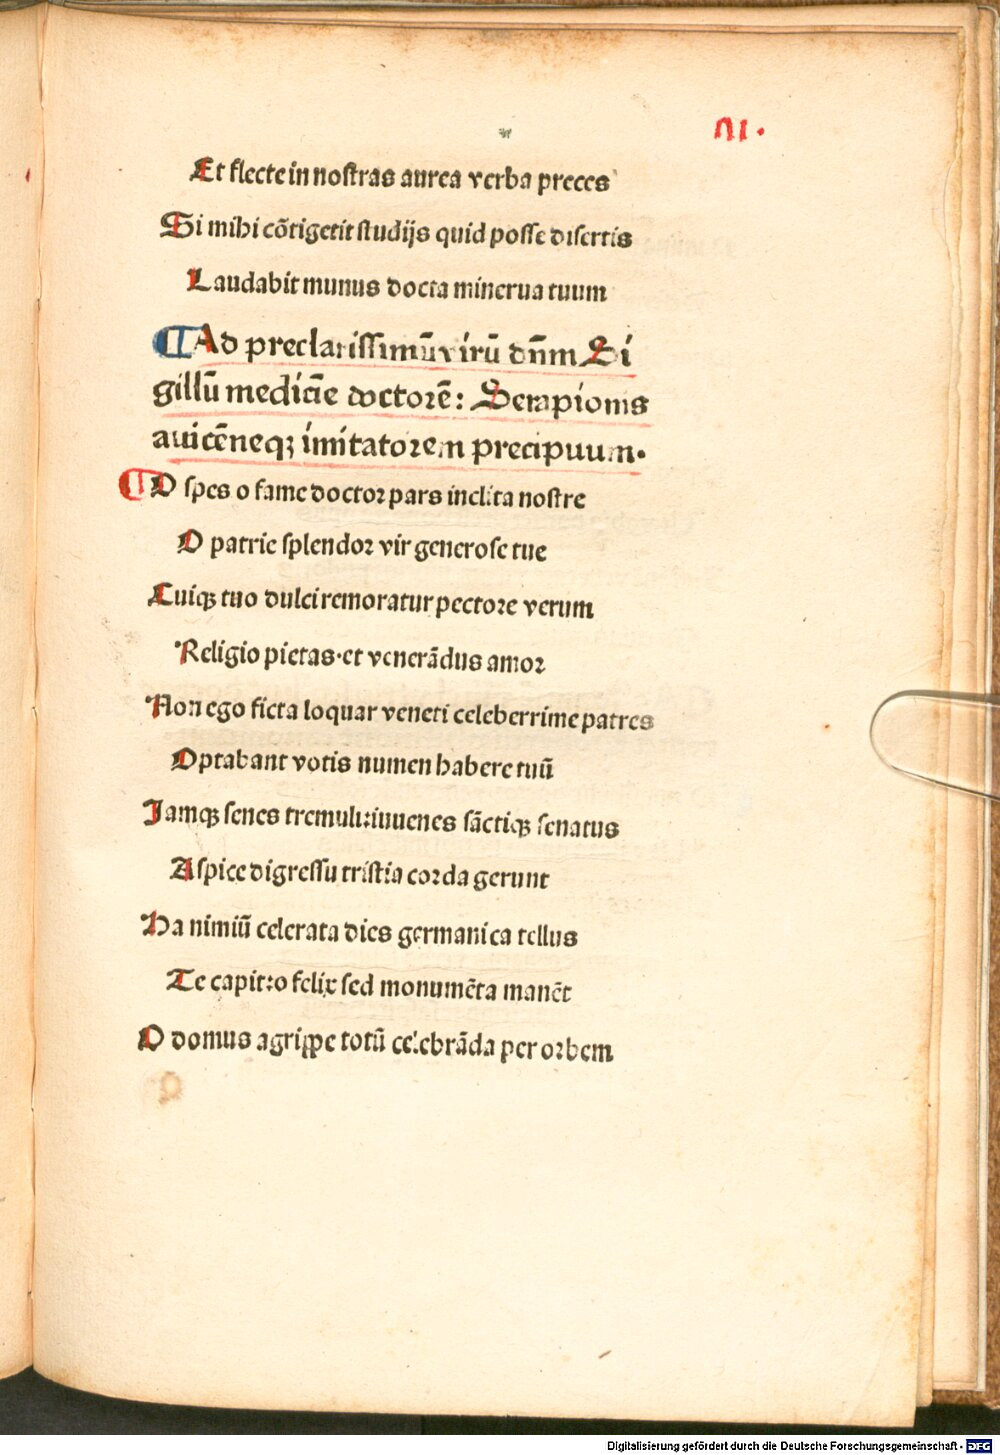 VI.
Et flecte in nostras aurea verba preces
Si mihi cõtigetit studijs quid posse disertis
Laudabit munus docta minerua tuum
¶Ad preclarissimũ virũ dñm Si
gillũ medicĩe doctorẽ: Serapionis
auicẽneqꝫ imitatorem precipuum.
¶O spes o fame doctor pars inclita nostre
O patrie splendor vir generose tue
Cuiqꝫ tuo dulci remoratur pectore verum
Religio pietas·et venerãdus amor
Non ego ficta loquar veneti celeberrime patres
Optabant votis numen habere tuũ
Iamqꝫ senes tremuli:iuuenes sãctiqꝫ senatus
Aspice digressu tristia corda gerunt
Ha nimiũ celerata dies germanica tellus
Te capit:o felix sed monumẽta manẽt
O domus agrippe totũ celebrãda per orbem
Digitalisierung gefördert durch die Deutsche Forschungsgemeinschaft - DFG